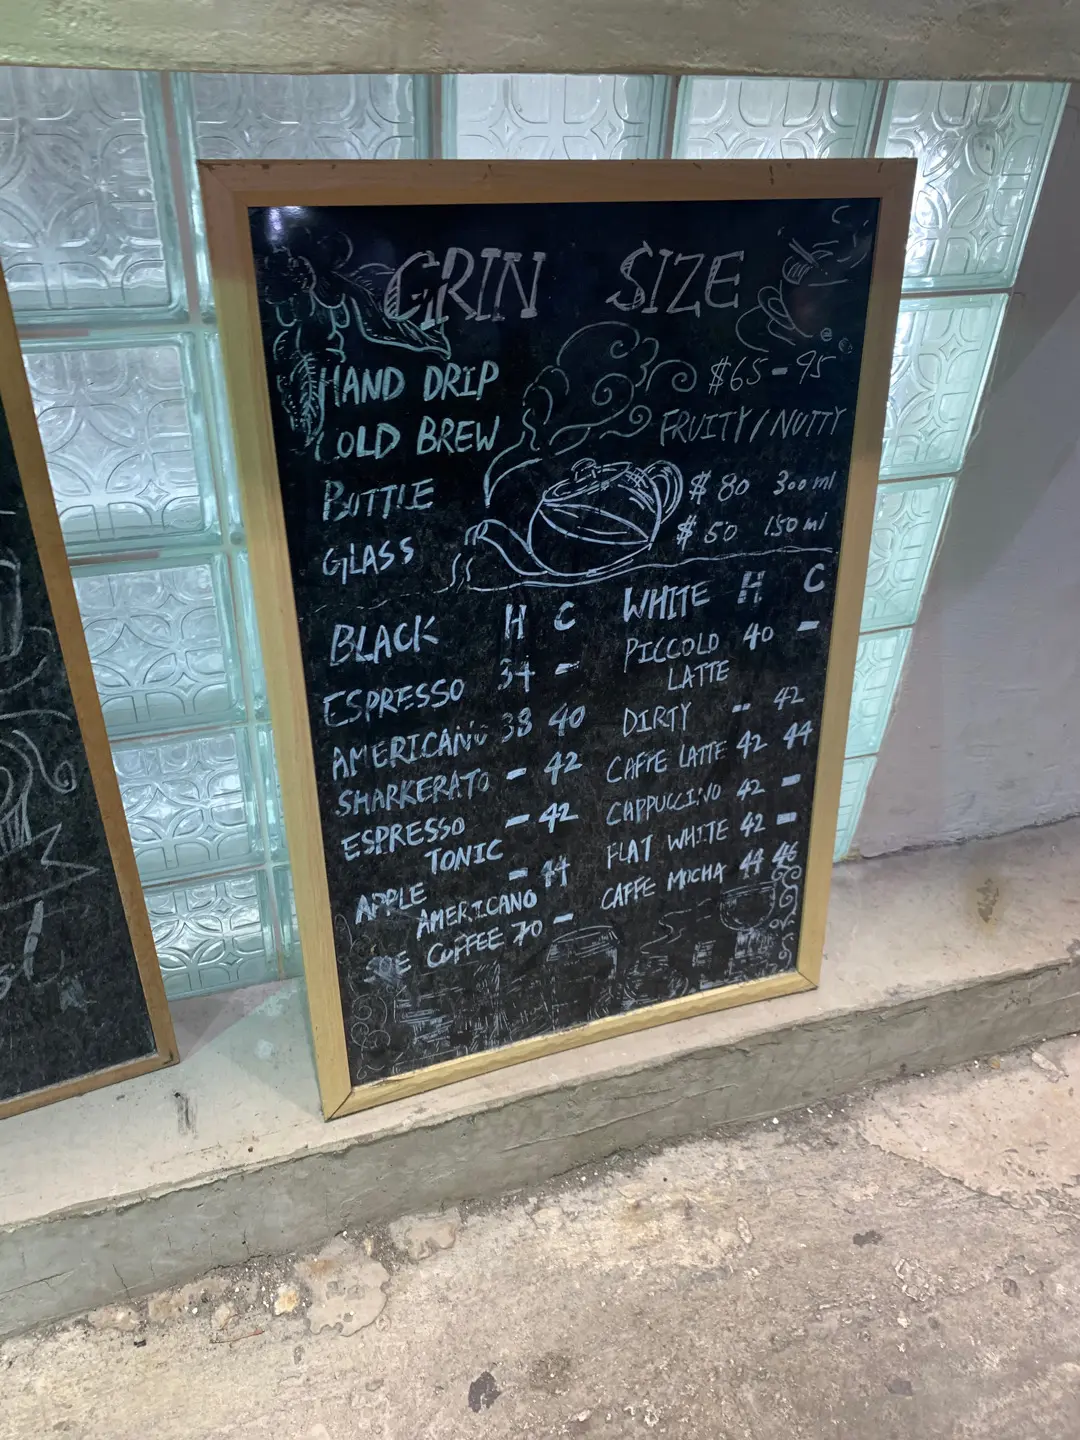 GRIN SIZE
HAND DRIP $65 - 95
COLD BREW FRUITY / NUTTY
BOTTLE $80 300ml
GLASS $50 150ml
BLACK H C
ESPRESSO 34 -
AMERICANO 38 40
SHARKERATO - 42
ESPRESSO - 42
TONIC
APPLE - 44
AMERICANO
SOE COFFEE 70 -
WHITE H C
PICCOLO 40 -
LATTE
DIRTY -- 42
CAFFE LATTE 42 44
CAPPUCCINO 42 -
FLAT WHITE 42 -
CAFFE MOCHA 44 46